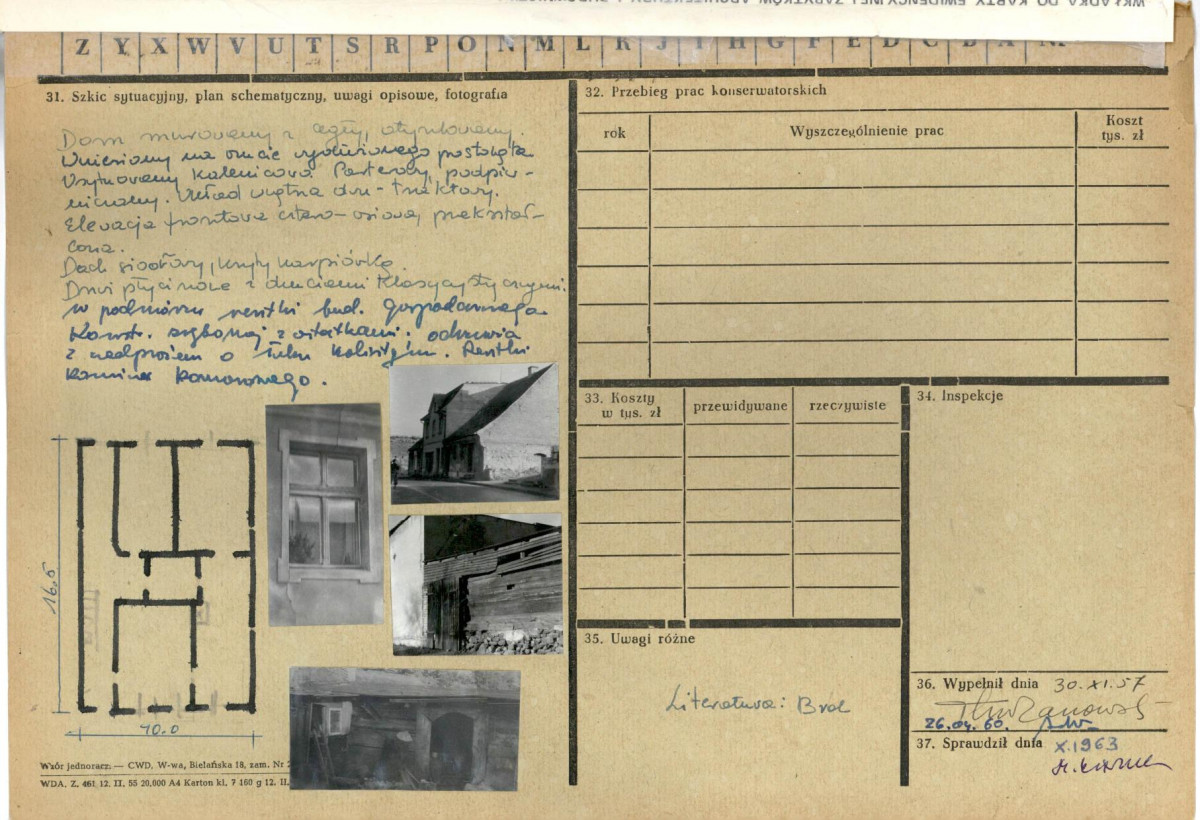 WKŁADKA DO KARTY EWIDENCYJNEJ ZABYTKÓW ARCHITEKTURY I BUDOWNICTWA
Z Y X W V U T S R P O N M L K J I H G F E D C B A
31. Szkic sytuacyjny, plan schematyczny, uwagi opisowe, fotografia
Dom murowany z cegły, otynkowany.
Wzniesiony na rzucie wydłużonego prostokąta
Usytuowany kalenicowo. Parterowy, podpiw-
niczony. Układ wnętrza dwu-traktowy.
Elewacja frontowa cztero-osiowa, przekształ-
cona.
Dach siodłowy, kryty karpiówką
Drzwi płycinowe z klasycystycznymi.
w podwórzu resztki bud. gospodarczego
Konstr. zrębowej z ostatkami. odrzwia
z nadprożem o łuku kolistym. Resztki
komina komorowego.
16.5
10.0
Wzór jednoraz. — CWD, W-wa, Bielańska 18, zam. Nr
WDA. Z. 461 12. II. 55 20.000 A4 Karton kl. 7 160 g 12. II.
32. Przebieg prac konserwatorskich
rok
Wyszczególnienie prac
Koszt
tys. zł
33. Koszty
w tys. zł
przewidywane
rzeczywiste
34. Inspekcje
35. Uwagi różne
Literatura:
36. Wypełnił dnia 30.XI.57
26.04.60.
37. Sprawdził dnia X.1963